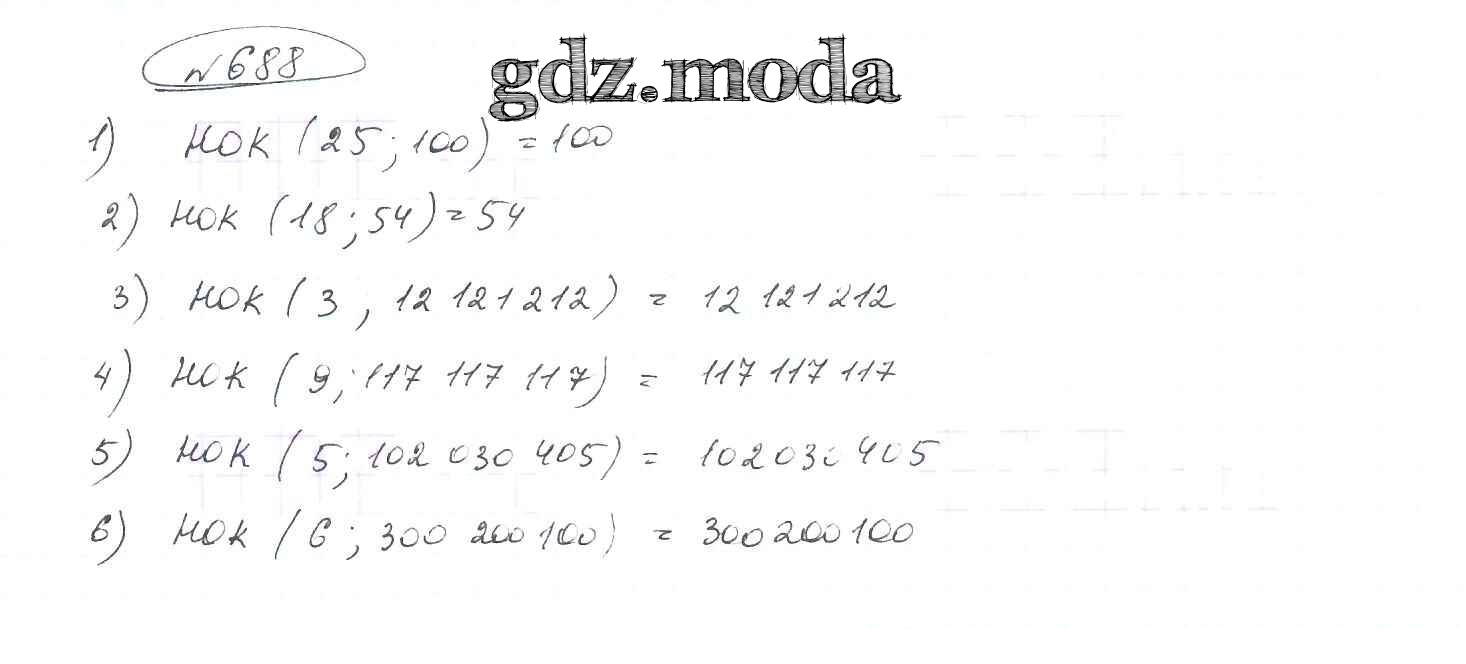 №688
gdz.moda
1) НОК (25; 100) = 100
2) НОК (18; 54) = 54
3) НОК (3, 12 121 212) = 12 121 212
4) НОК (9; 117 117 117) = 117 117 117
5) НОК (5; 102 030 405) = 102030405
6) НОК (6; 300 200 100) = 300200100